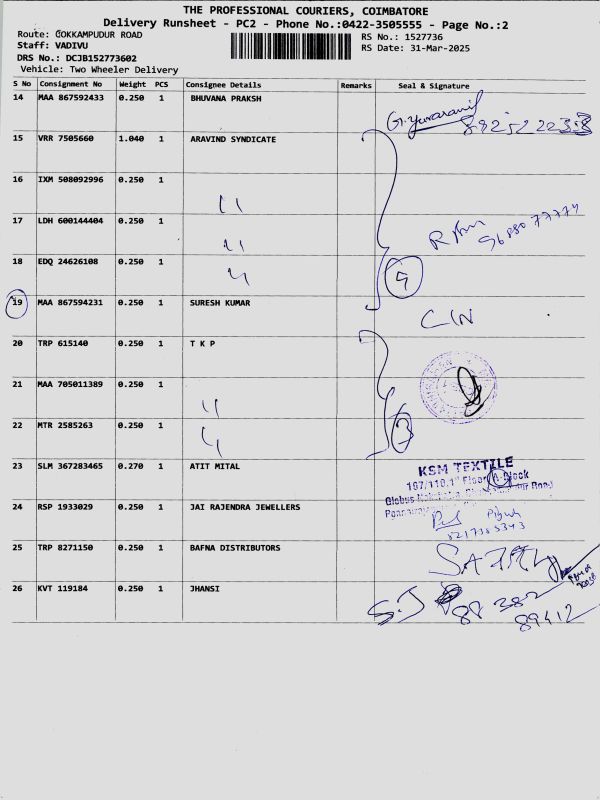 THE PROFESSIONAL COURIERS, COIMBATORE
Delivery Runsheet - PC2 - Phone No.:0422-3505555 - Page No.:2
Route: GOKKAMPUDUR ROAD
Staff: VADIVU
DRS No.: DCJB152773602
Vehicle: Two Wheeler Delivery
RS No.: 1527736
RS Date: 31-Mar-2025
S No Consignment No Weight PCS Consignee Details Remarks Seal & Signature
14 MAA 867592433 0.250 1 BHUVANA PRAKSH
15 VRR 7505660 1.040 1 ARAVIND SYNDICATE
16 IXM 508092996 0.250 1 "
17 LDH 600144404 0.250 1 "
18 EDQ 24626108 0.250 1 "
4
19 MAA 867594231 0.250 1 SURESH KUMAR C/N
20 TRP 615140 0.250 1 T K P
21 MAA 705011389 0.250 1 "
22 MTR 2585263 0.250 1 "
3
23 SLM 367283465 0.270 1 ATIT MITAL
KSM TEXTILE
24 RSP 1933029 0.250 1 JAI RAJENDRA JEWELLERS
25 TRP 8271150 0.250 1 BAFNA DISTRIBUTORS
26 KVT 119184 0.250 1 JHANSI
S.J 88 382
89412